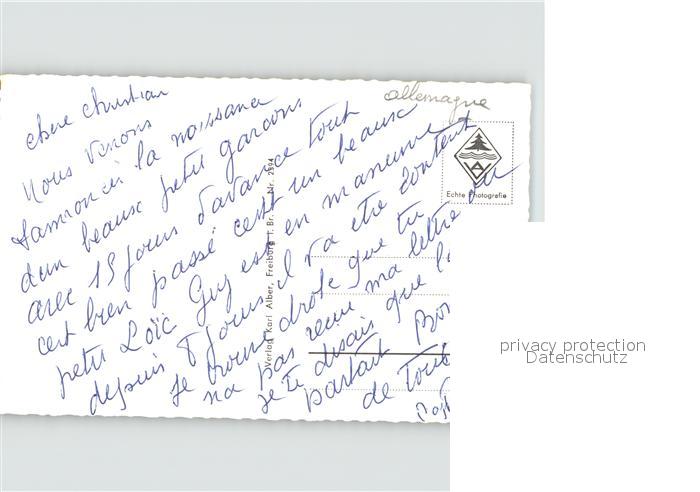 allemagne
chere christian
Nous venons
t'annoncer la naissance
d'un beaux petit garcons
avec 15 jours d'avance tout
cest bien passé cest un beaux
petit Loïc Guy est en maneuvre
depuis 8 jours il va etre content
je trouve drole que tu
na pas recue ma lettre ou
je te disais que l
partout Bon
de tout
VA
Echte Photografie
Verlag Karl Alber, Freiburg i. Br. Nr. 2594
privacy protection
Datenschutz